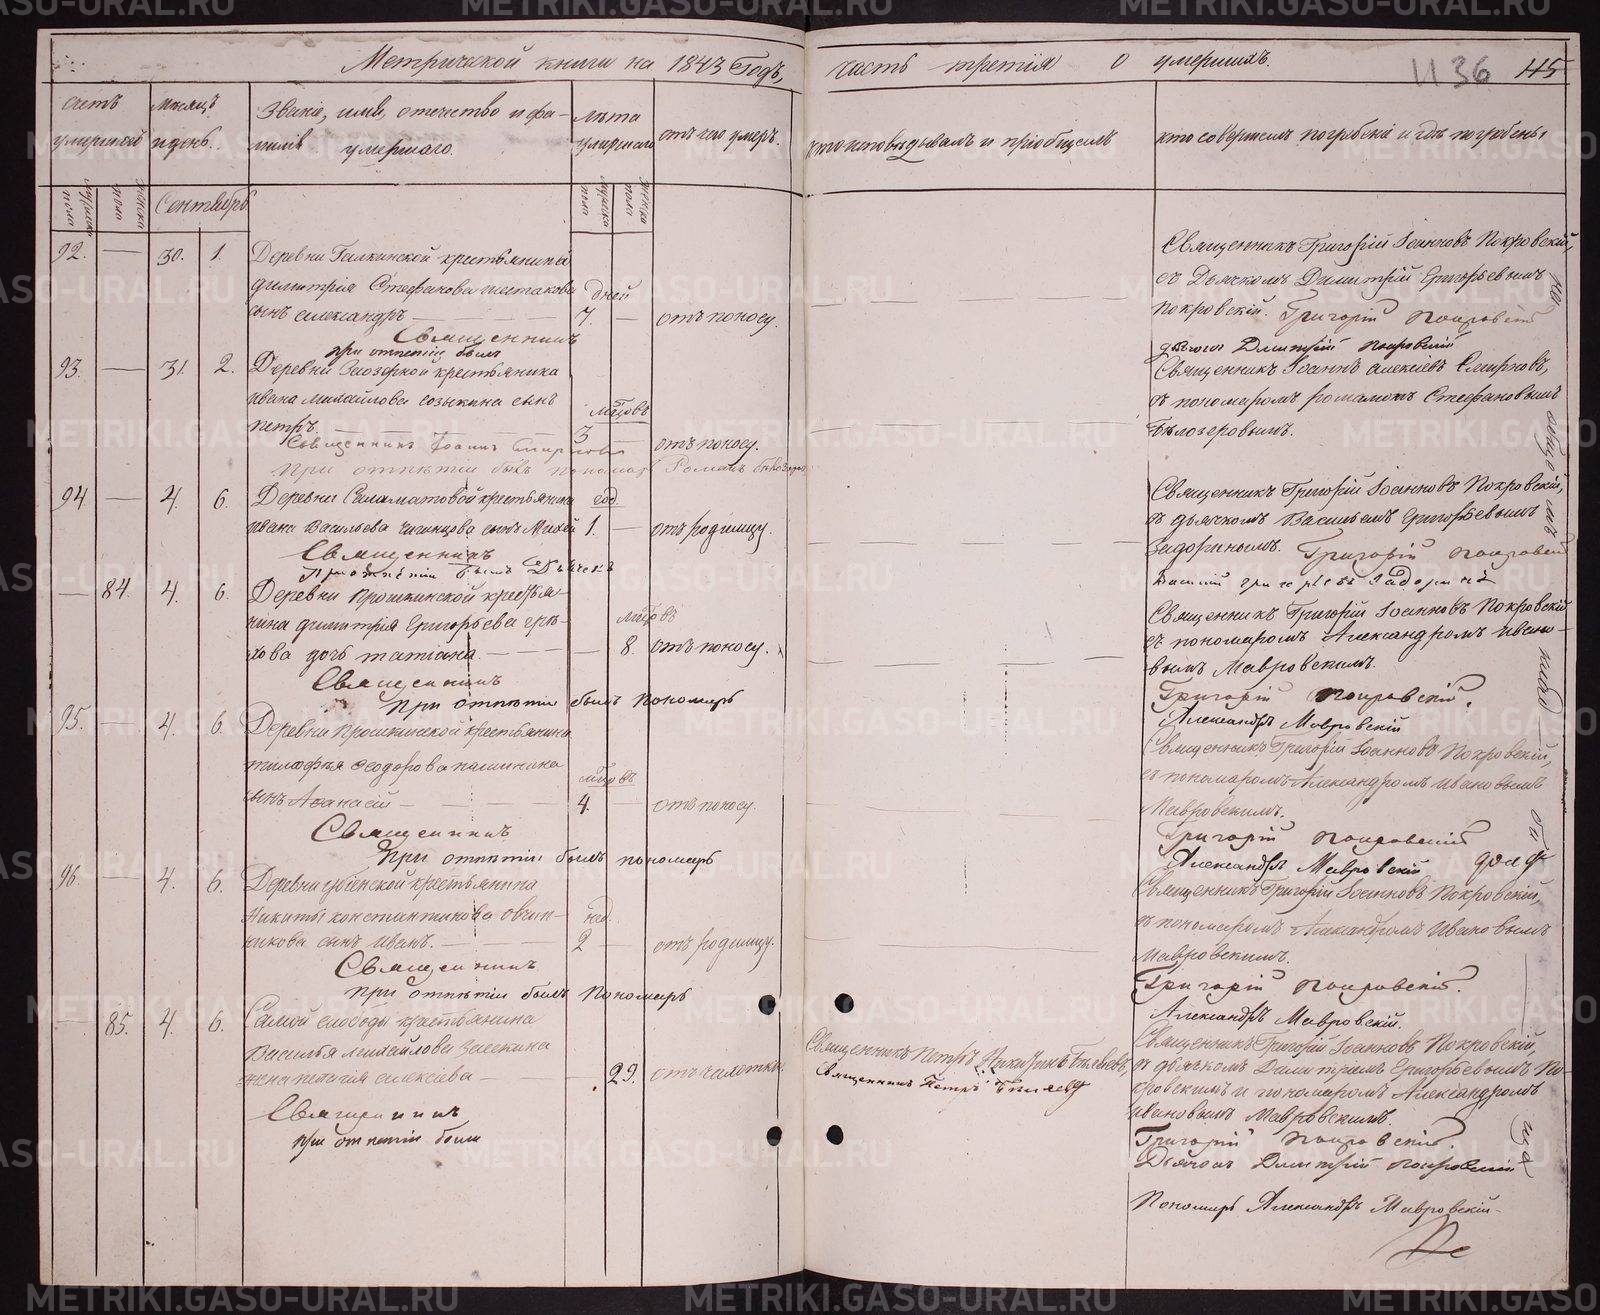 Метрической книги на 1843 Годъ,
часть третiя о умершихъ.
1136 115
счетъ умершихъ
мѣсяцъ и день.
Званiе, имя, отечество и фа-
милiя умершаго.
лѣта умершаго
отъ чего умеръ.
кто исповѣдывалъ и прiобщалъ
кто совершалъ погребенiе и гдѣ погребены
мужска пола
женска пола
Сентябрь
мужска пола
женска пола
92. — 30. 1.
Деревни Галкинской крестьянина
Димитрiя Стефанова Шестакова
сынъ Александръ
дней
7. — отъ поносу.
Священникъ
при отпетiи былъ
Священникъ Григорiй Iоанновъ Покровскiй,
съ Дьячкомъ Димитрiй Григорьевымъ
Покровскiй. Григорiй Покровскiй
дьячокъ Димитрiй Покровскiй
93. — 31. 2.
Деревни Заозерной крестьянина
Ивана Михайлова Созыкина сынъ
Петръ.
мѣсцовъ
3 — отъ поносу.
Священникъ Iоаннъ Смирновъ
при отпѣтiи былъ пономарь Романъ Бѣлозеровъ
Священникъ Iоаннъ Алексiевъ Смирновъ,
съ пономаромъ Романомъ Стефановымъ
Бѣлозеровымъ.
94. — 4. 6.
Деревни Саламатовой крестьянина
Ивана Васильева сынъ Михей
год.
1. — отъ родимцу.
Священникъ
При отпѣтiи былъ Дьячекъ
Священникъ Григорiй Iоанновъ Покровскiй,
съ дьячкомъ Васильемъ Григорьевымъ
Задоринымъ. Григорiй Покровскiй
Василiй Григорьевъ Задоринъ
— 84. 4. 6.
Деревни Прошкинской крестья-
нина Димитрiя Григорьева Грѣ-
хова дочь Татiана.
мѣсцовъ
— 8. отъ поносу.
Священникъ
При отпѣтiи былъ Пономарь
Священникъ Григорiй Iоанновъ Покровскiй
съ пономаромъ Александромъ Ивано-
вымъ Мавровскимъ.
Григорiй Покровскiй.
Александръ Мавровскiй
95. — 4. 6.
Деревни Прошкинской крестьянина
Тимофея Ѳеодорова сынъ Аѳанасiй
мѣсцовъ
4. — отъ поносу.
Священникъ
При отпѣтiи былъ пономарь
Священникъ Григорiй Iоанновъ Покровскiй,
съ пономаромъ Александромъ Ивановымъ
Мавровскимъ.
Григорiй Покровскiй
Александръ Мавровскiй
96. — 4. 6.
Деревни крестьянина
Никиты Константинова Овчин-
никова сынъ Иванъ.
нед.
2 — отъ родимцу.
Священникъ
При отпѣтiи былъ Пономарь
Священникъ Григорiй Iоанновъ Покровскiй,
съ пономаромъ Александромъ Ивановымъ
Мавровскимъ.
Григорiй Покровскiй.
Александръ Мавровскiй.
— 85. 4. 6.
Самой слободы крестьянина
Василья Михайлова
жена Пелагiя Алексiева
29. отъ чахотки.
Священникъ
при отпетiи были
Священникъ Петръ Бѣляевъ,
Священникъ Петръ Бѣляевъ
Священникъ Григорiй Iоанновъ Покровскiй,
съ дьячкомъ Димитрiемъ Григорьевымъ По-
кровскимъ и пономаромъ Александромъ
Ивановымъ Мавровскимъ.
Григорiй Покровскiй.
Дьячокъ Димитрiй Покровскiй
Пономарь Александръ Мавровскiй.
на общемъ кладбищѣ
METRIKI.GASO-URAL.RU